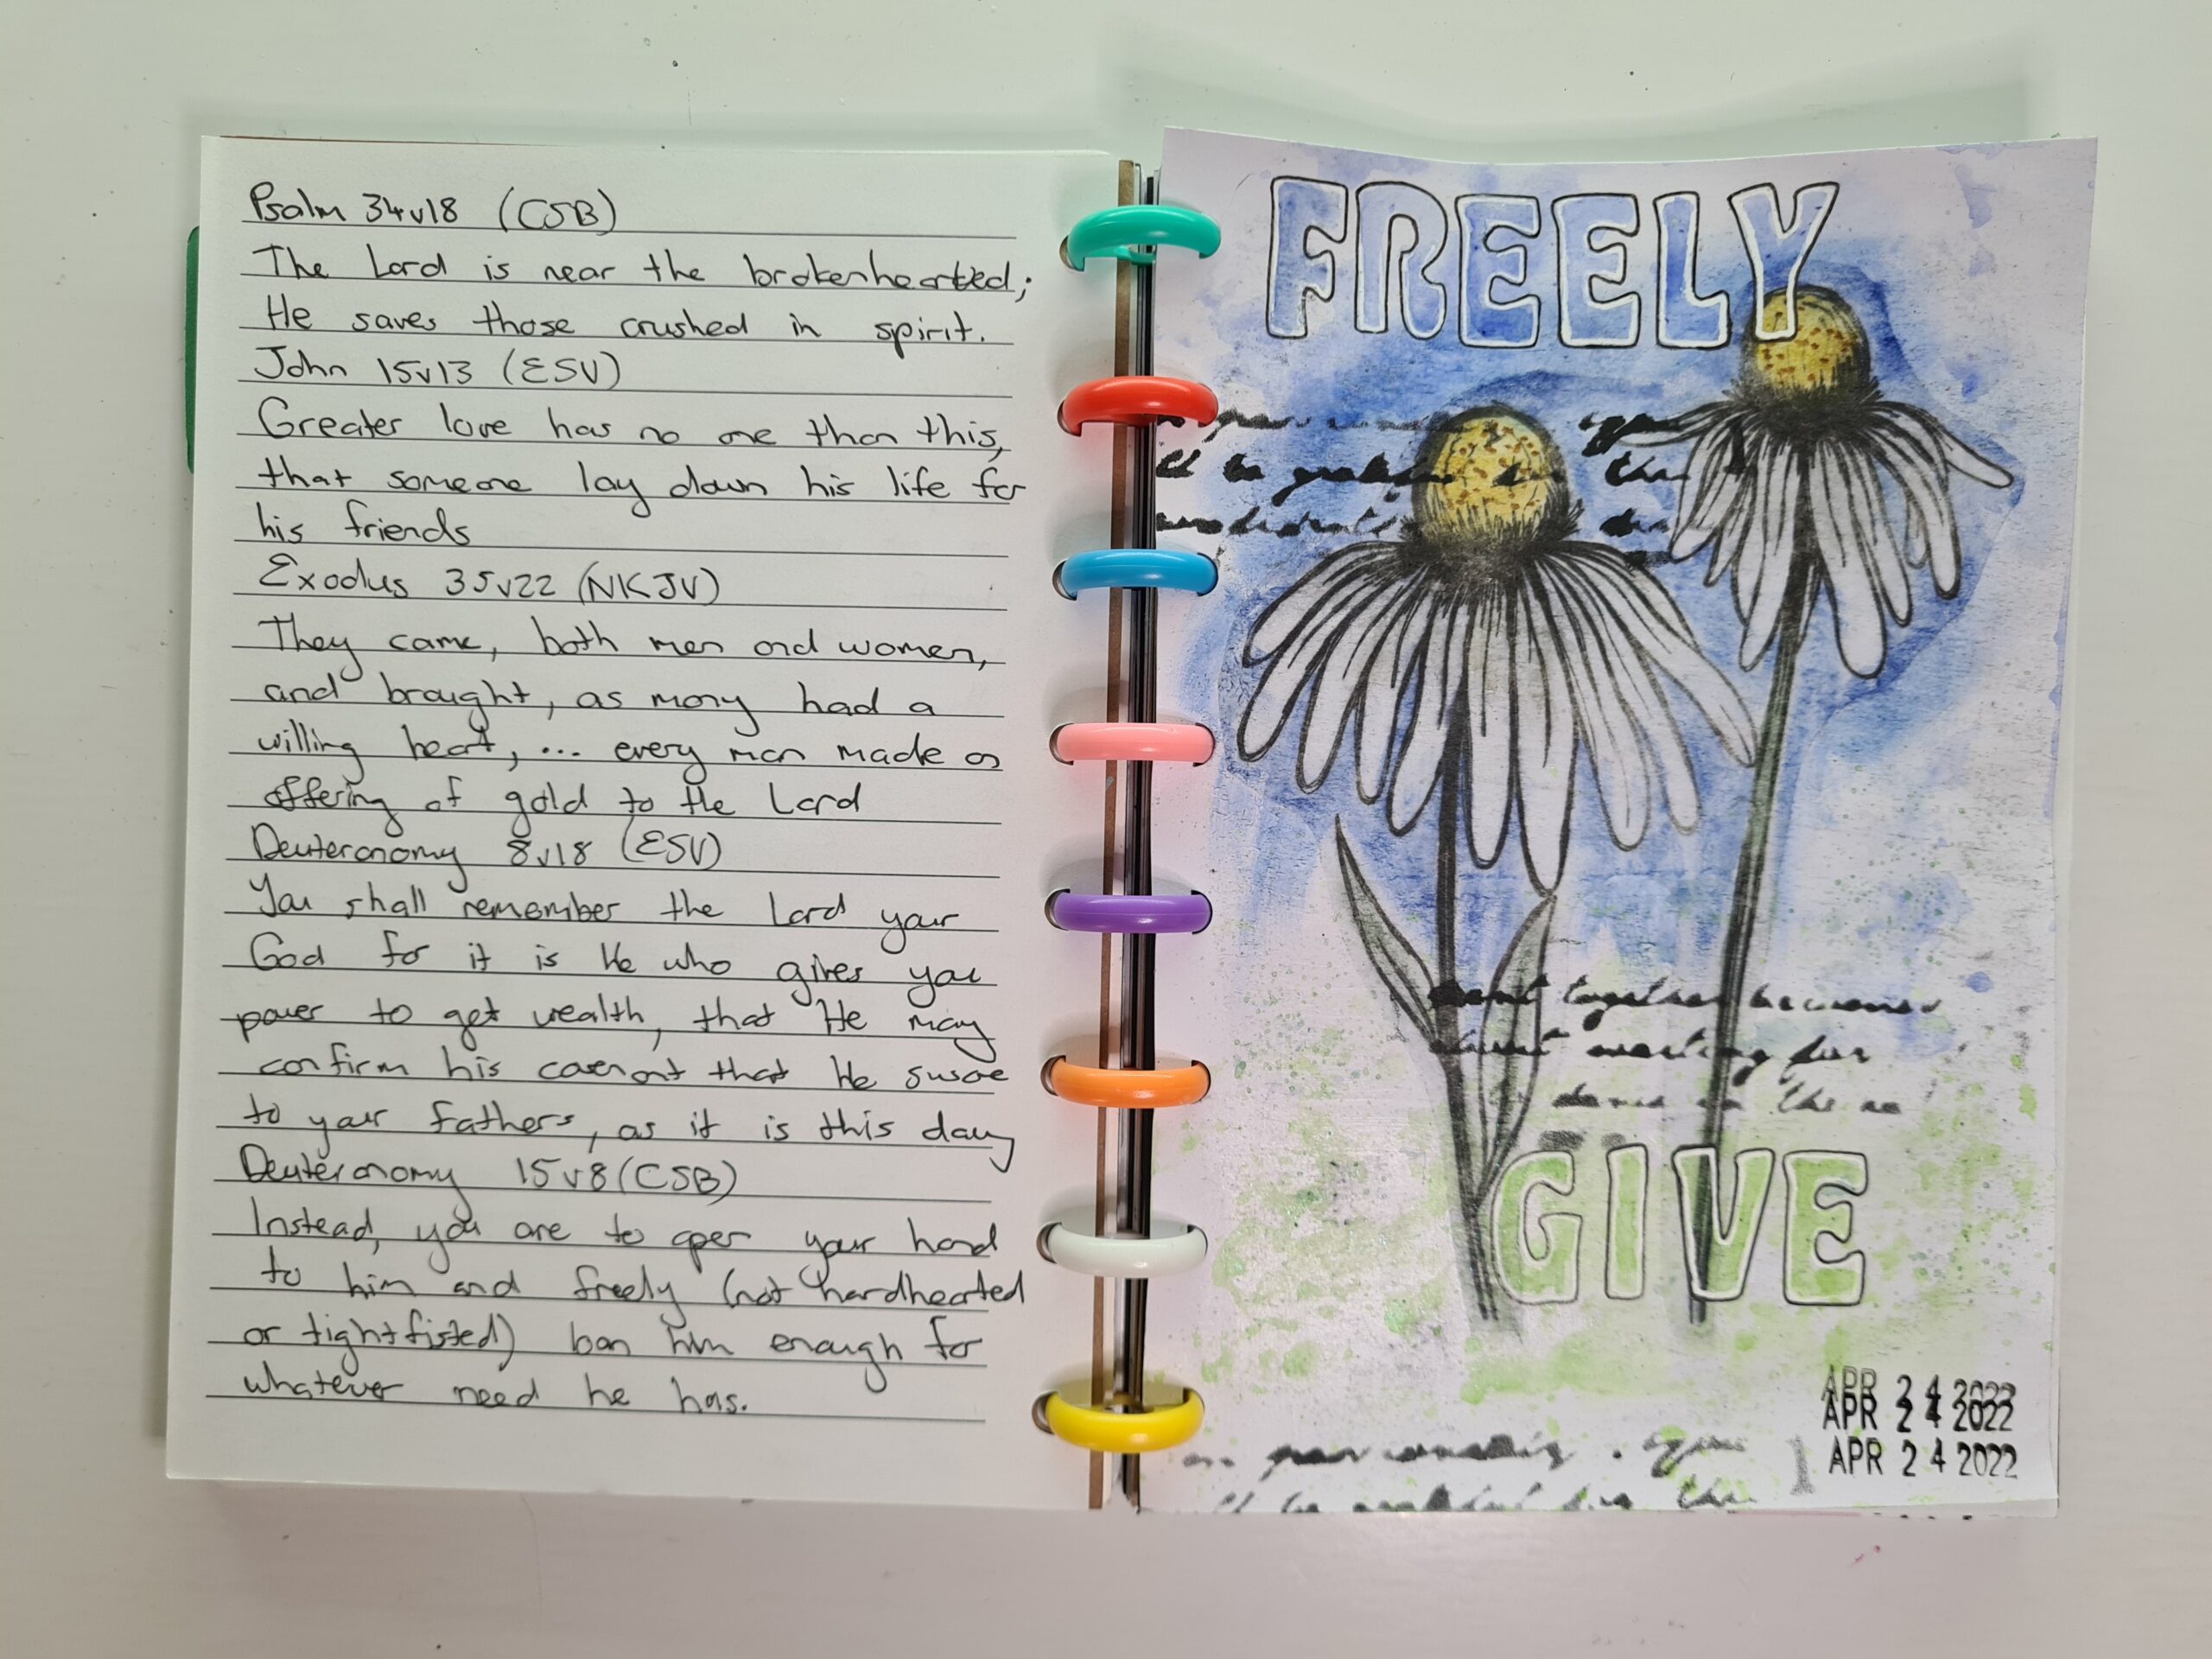 Psalm 34v18 (CSB)
The Lord is near the brokenhearted;
He saves those crushed in spirit.
John 15v13 (ESV)
Greater love has no one than this,
that someone lay down his life for
his friends
Exodus 35v22 (NKJV)
They came, both men and women,
and brought, as many had a
willing heart, ... every man made an
offering of gold to the Lord
Deuteronomy 8v18 (ESV)
You shall remember the Lord your
God for it is He who gives you
power to get wealth, that He may
confirm his covenant that He swore
to your fathers, as it is this day
Deuteronomy 15v8 (CSB)
Instead, you are to open your hand
to him and freely (not hardhearted
or tightfisted) loan him enough for
whatever need he has.
FREELY
be
together
waiting for
the
GIVE
APR 24 2022
APR 24 2022
APR 24 2022